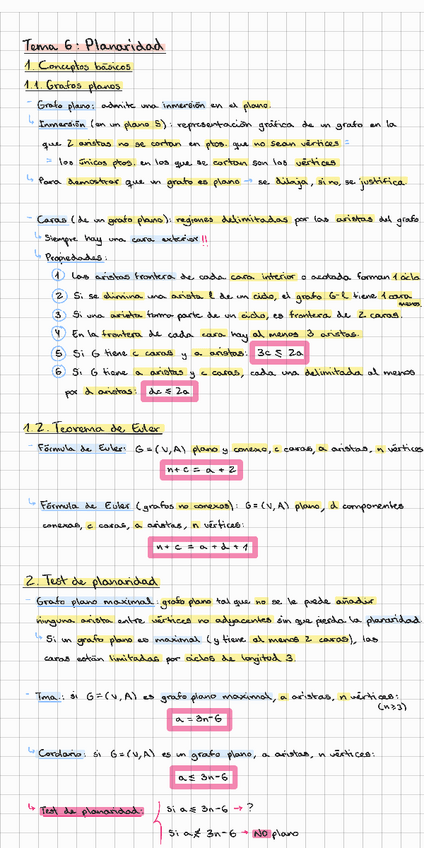 Tema 6: Planaridad
1. Conceptos básicos
1.1. Grafos planos
- Grafo plano: admite una inmersión en el plano.
↳ Inmersión (en un plano S): representación gráfica de un grafo en la
que 2 aristas no se cortan en ptos. que no sean vértices =
= los únicos ptos. en los que se cortan son los vértices
↳ Para demostrar que un grafo es plano → se dibuja, si no, se justifica.
- Caras (de un grafo plano): regiones delimitadas por las aristas del grafo
↳ Siempre hay una cara exterior!!
↳ Propiedades:
1 Las aristas frontera de cada cara interior o acotada forman 1 ciclo
2 Si se elimina una arista l de un ciclo, el grafo G-l tiene 1 cara
menos.
3 Si una arista forma parte de un ciclo, es frontera de 2 caras.
4 En la frontera de cada cara hay al menos 3 aristas.
5 Si G tiene c caras y a aristas: 3c ≤ 2a
6 Si G tiene a aristas y c caras, cada una delimitada al menos
por d aristas: dc ≤ 2a
1.2. Teorema de Euler
- Fórmula de Euler: G=(V,A) plano y conexo, c caras, a aristas, n vértices
n+c = a+2
↳ Fórmula de Euler (grafos no conexos): G=(V,A) plano, d componentes
conexas, c caras, a aristas, n vértices:
n+c = a+d+1
2. Test de planaridad
- Grafo plano maximal: grafo plano tal que no se le puede añadir
ninguna arista entre vértices no adyacentes sin que pierda la planaridad.
↳ Si un grafo plano es maximal (y tiene al menos 2 caras), las
caras están limitadas por ciclos de longitud 3.
- Tma.: si G=(V,A) es grafo plano maximal, a aristas, n vértices:
(n≥3)
a = 3n-6
↳ Corolario: si G=(V,A) es un grafo plano, a aristas, n vértices:
a ≤ 3n-6
↳ Test de planaridad: Si a ≤ 3n-6 → ?
Si a ≰ 3n-6 → NO plano